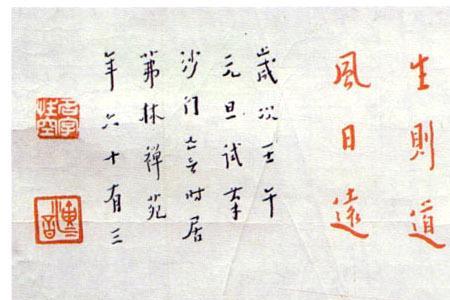 生則道
風日遠
歲次壬午
元旦試筆
沙门亡言时居
茀林禅苑
年六十有三
名字性空